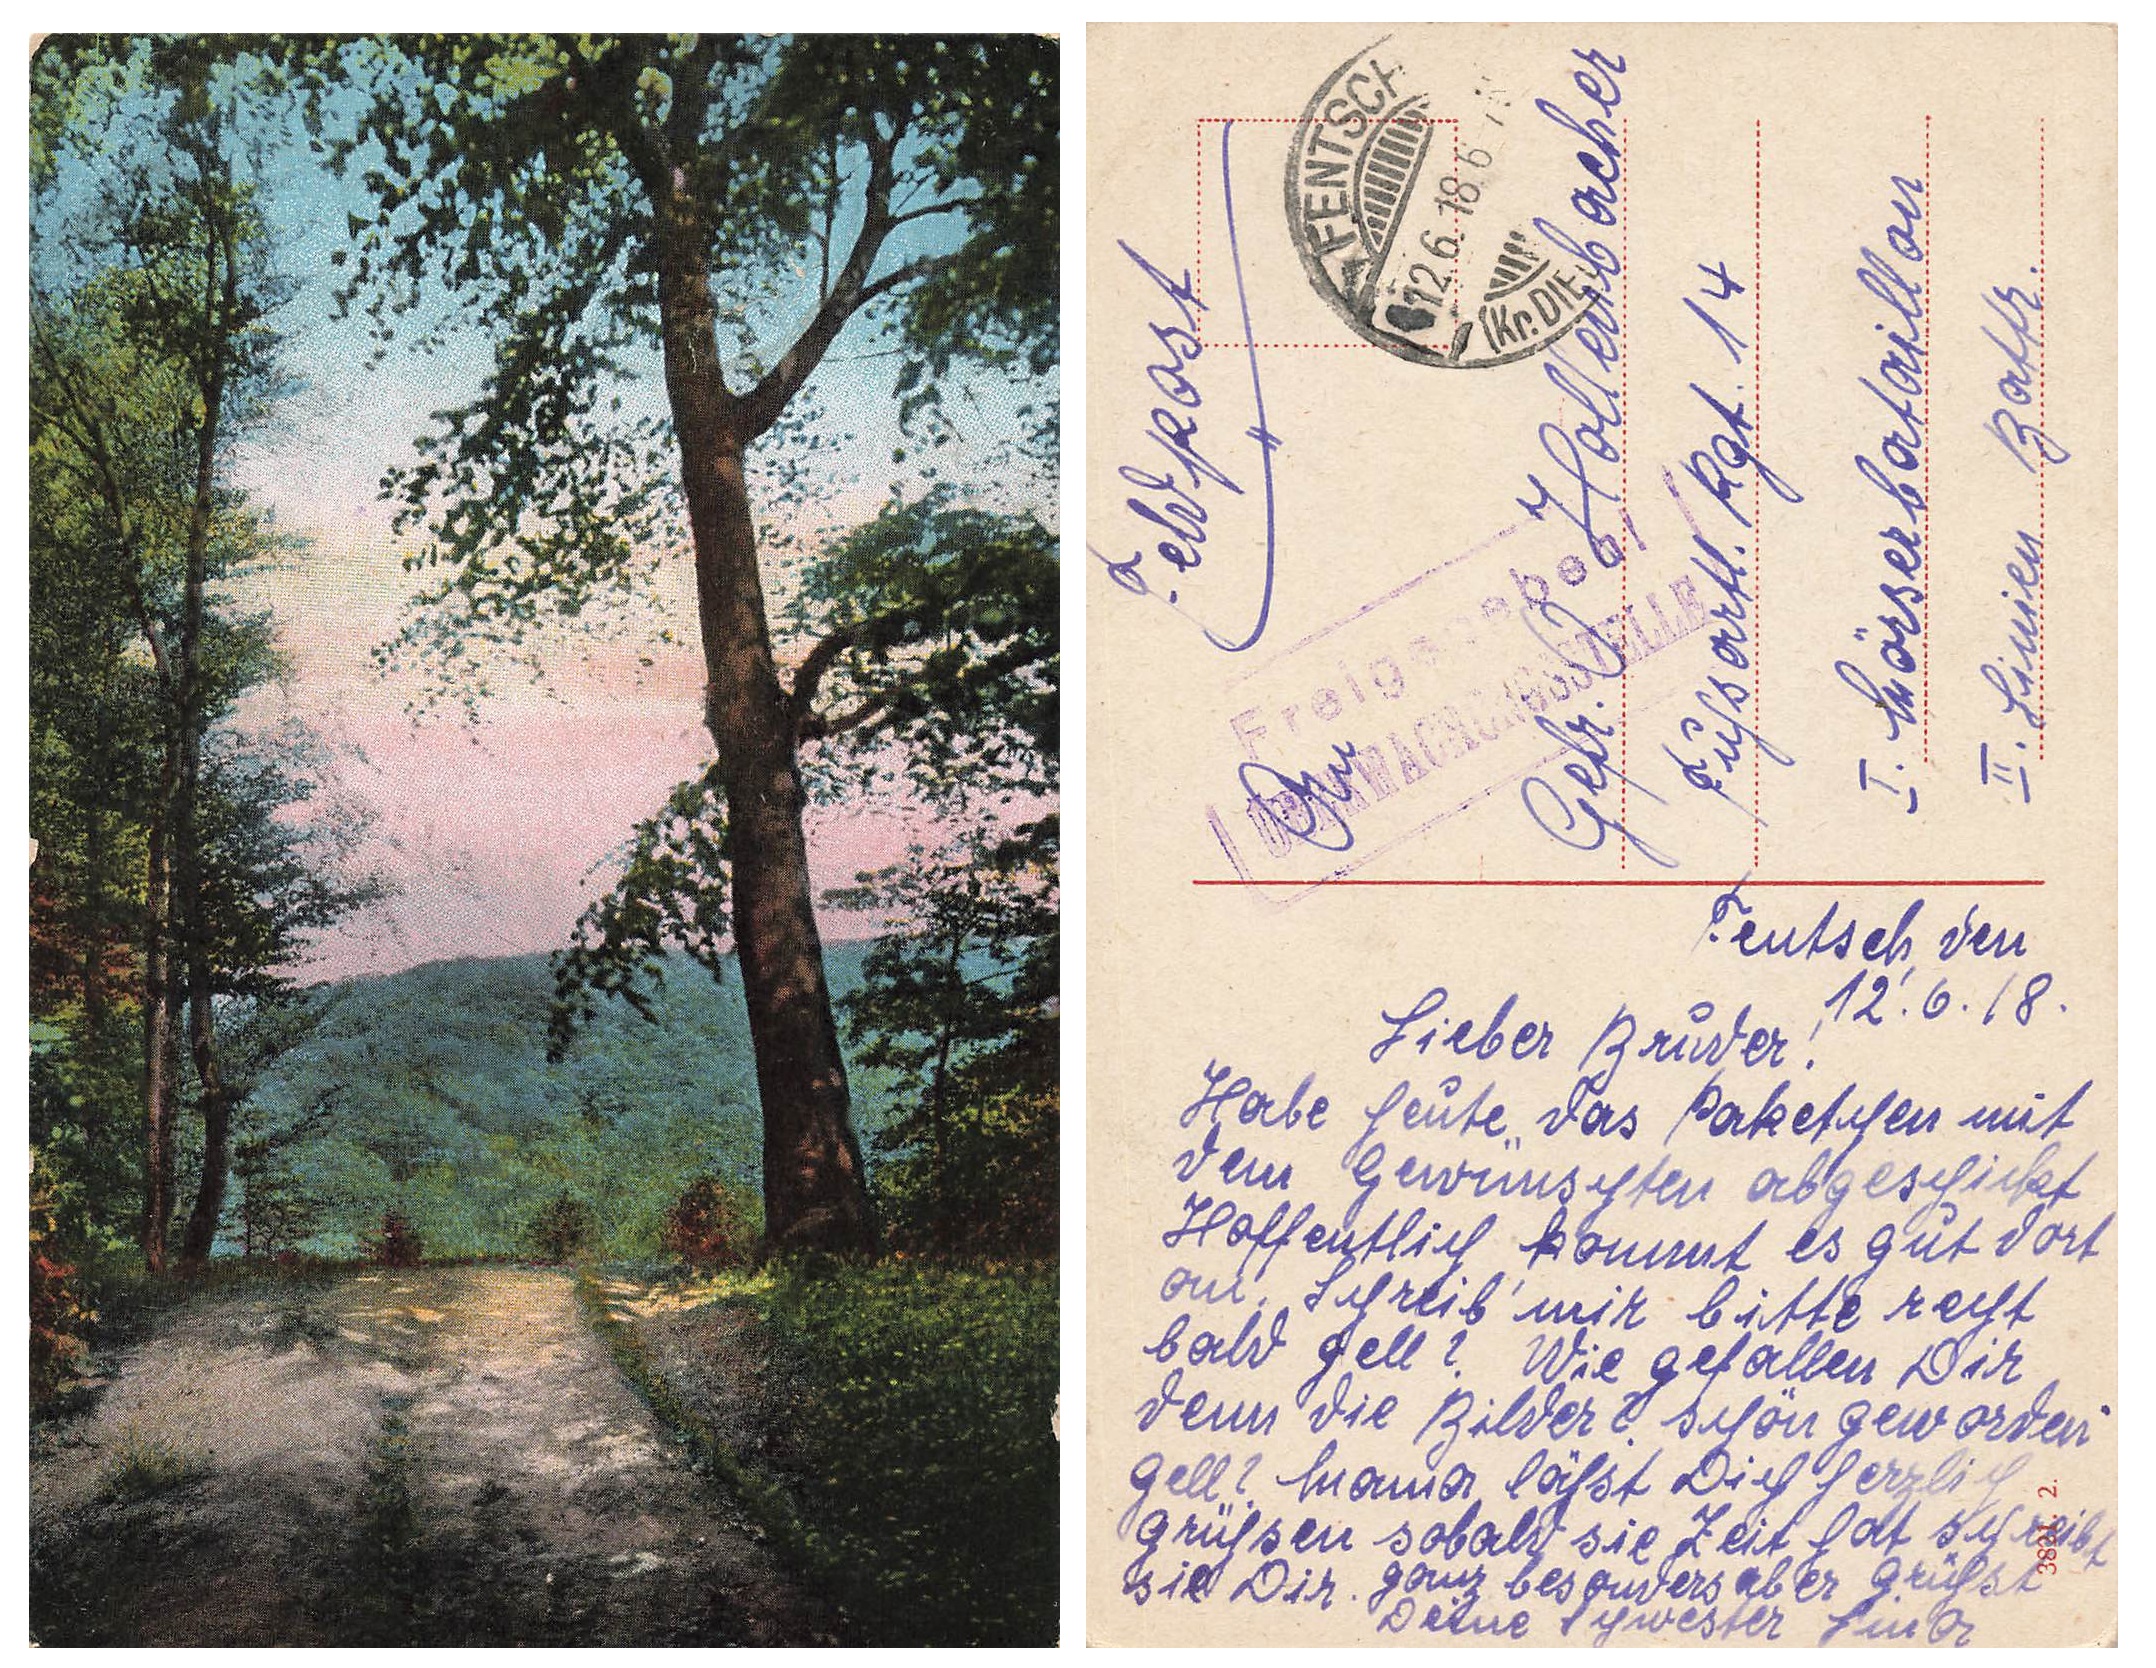 Feldpost
AFENTSCH
12.6.18.6-7N
(Kr. DIE
Freigegeben
ÜBERWACHUNGSSTELLE
An
Gefr. O. Hollenbacher
Fußartl. Rgt. 14
I. Mörserbataillon
II. Linien Battr.
Fentsch, den
12.6.18.
Lieber Bruder!
Habe heute das Paketchen mit
dem Gewünschten abgeschickt
Hoffentlich kommt es gut dort
an. Schreib' mir bitte recht
bald gell? Wie gefallen Dir
denn die Bilder? schön geworden
gell? Mama läßt Dich herzlich
grüßen sobald sie Zeit hat schreibt
sie Dir. ganz besonders aber grüßt
Deine Schwester Lina
3801. 2.